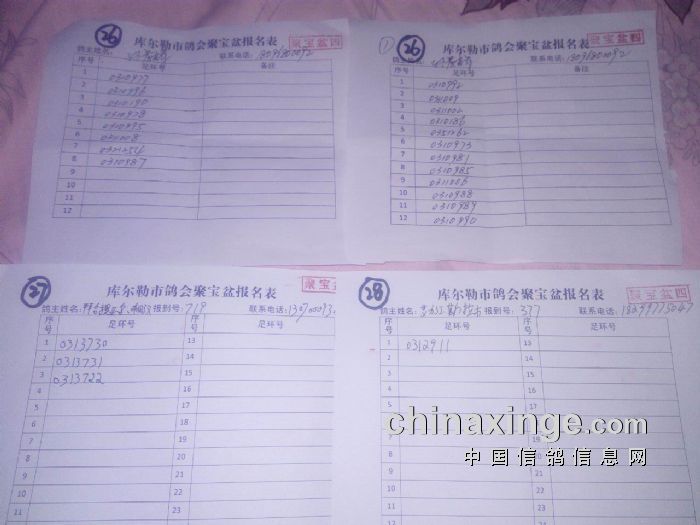 26
库尔勒市鸽会聚宝盆报名表
聚宝盆四
鸽主姓名:
联系电话:
序号 足环号 备注
1 0310977
2 0310996
3 0310190
4 0310978
5 0310995
6
7
8 0310987
9
10
11
12
26
库尔勒市鸽会聚宝盆报名表
聚宝盆四
鸽主姓名:
联系电话:
序号 足环号 备注
1 0310992
2
3 0311002
4 0310186
5 0351262
6 0310973
7 0310981
8 0310985
9 0311006
10 0310988
11 0310989
12 0310990
27
库尔勒市鸽会聚宝盆报名表
聚宝盆
鸽主姓名: 报到号: 719 联系电话:
序号 足环号 序号 足环号
1 0313730 13
2 0313731 14
3 0313722 15
4 16
5 17
6 18
7 19
8 20
9 21
10 22
11 23
28
库尔勒市鸽会聚宝盆报名表
聚宝盆四
鸽主姓名: 报到号: 377 联系电话: 18299775247
序号 足环号 序号 足环号
1 0312911 13
2 14
3 15
4 16
5 17
6
7
8
9 21
10 22
11 23
chinaxinge.com
中国信鸽信息网